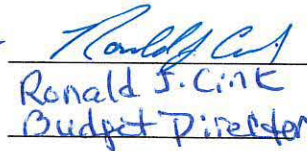 Ronald J. Cink
Ronald J. Cink
Budget Director